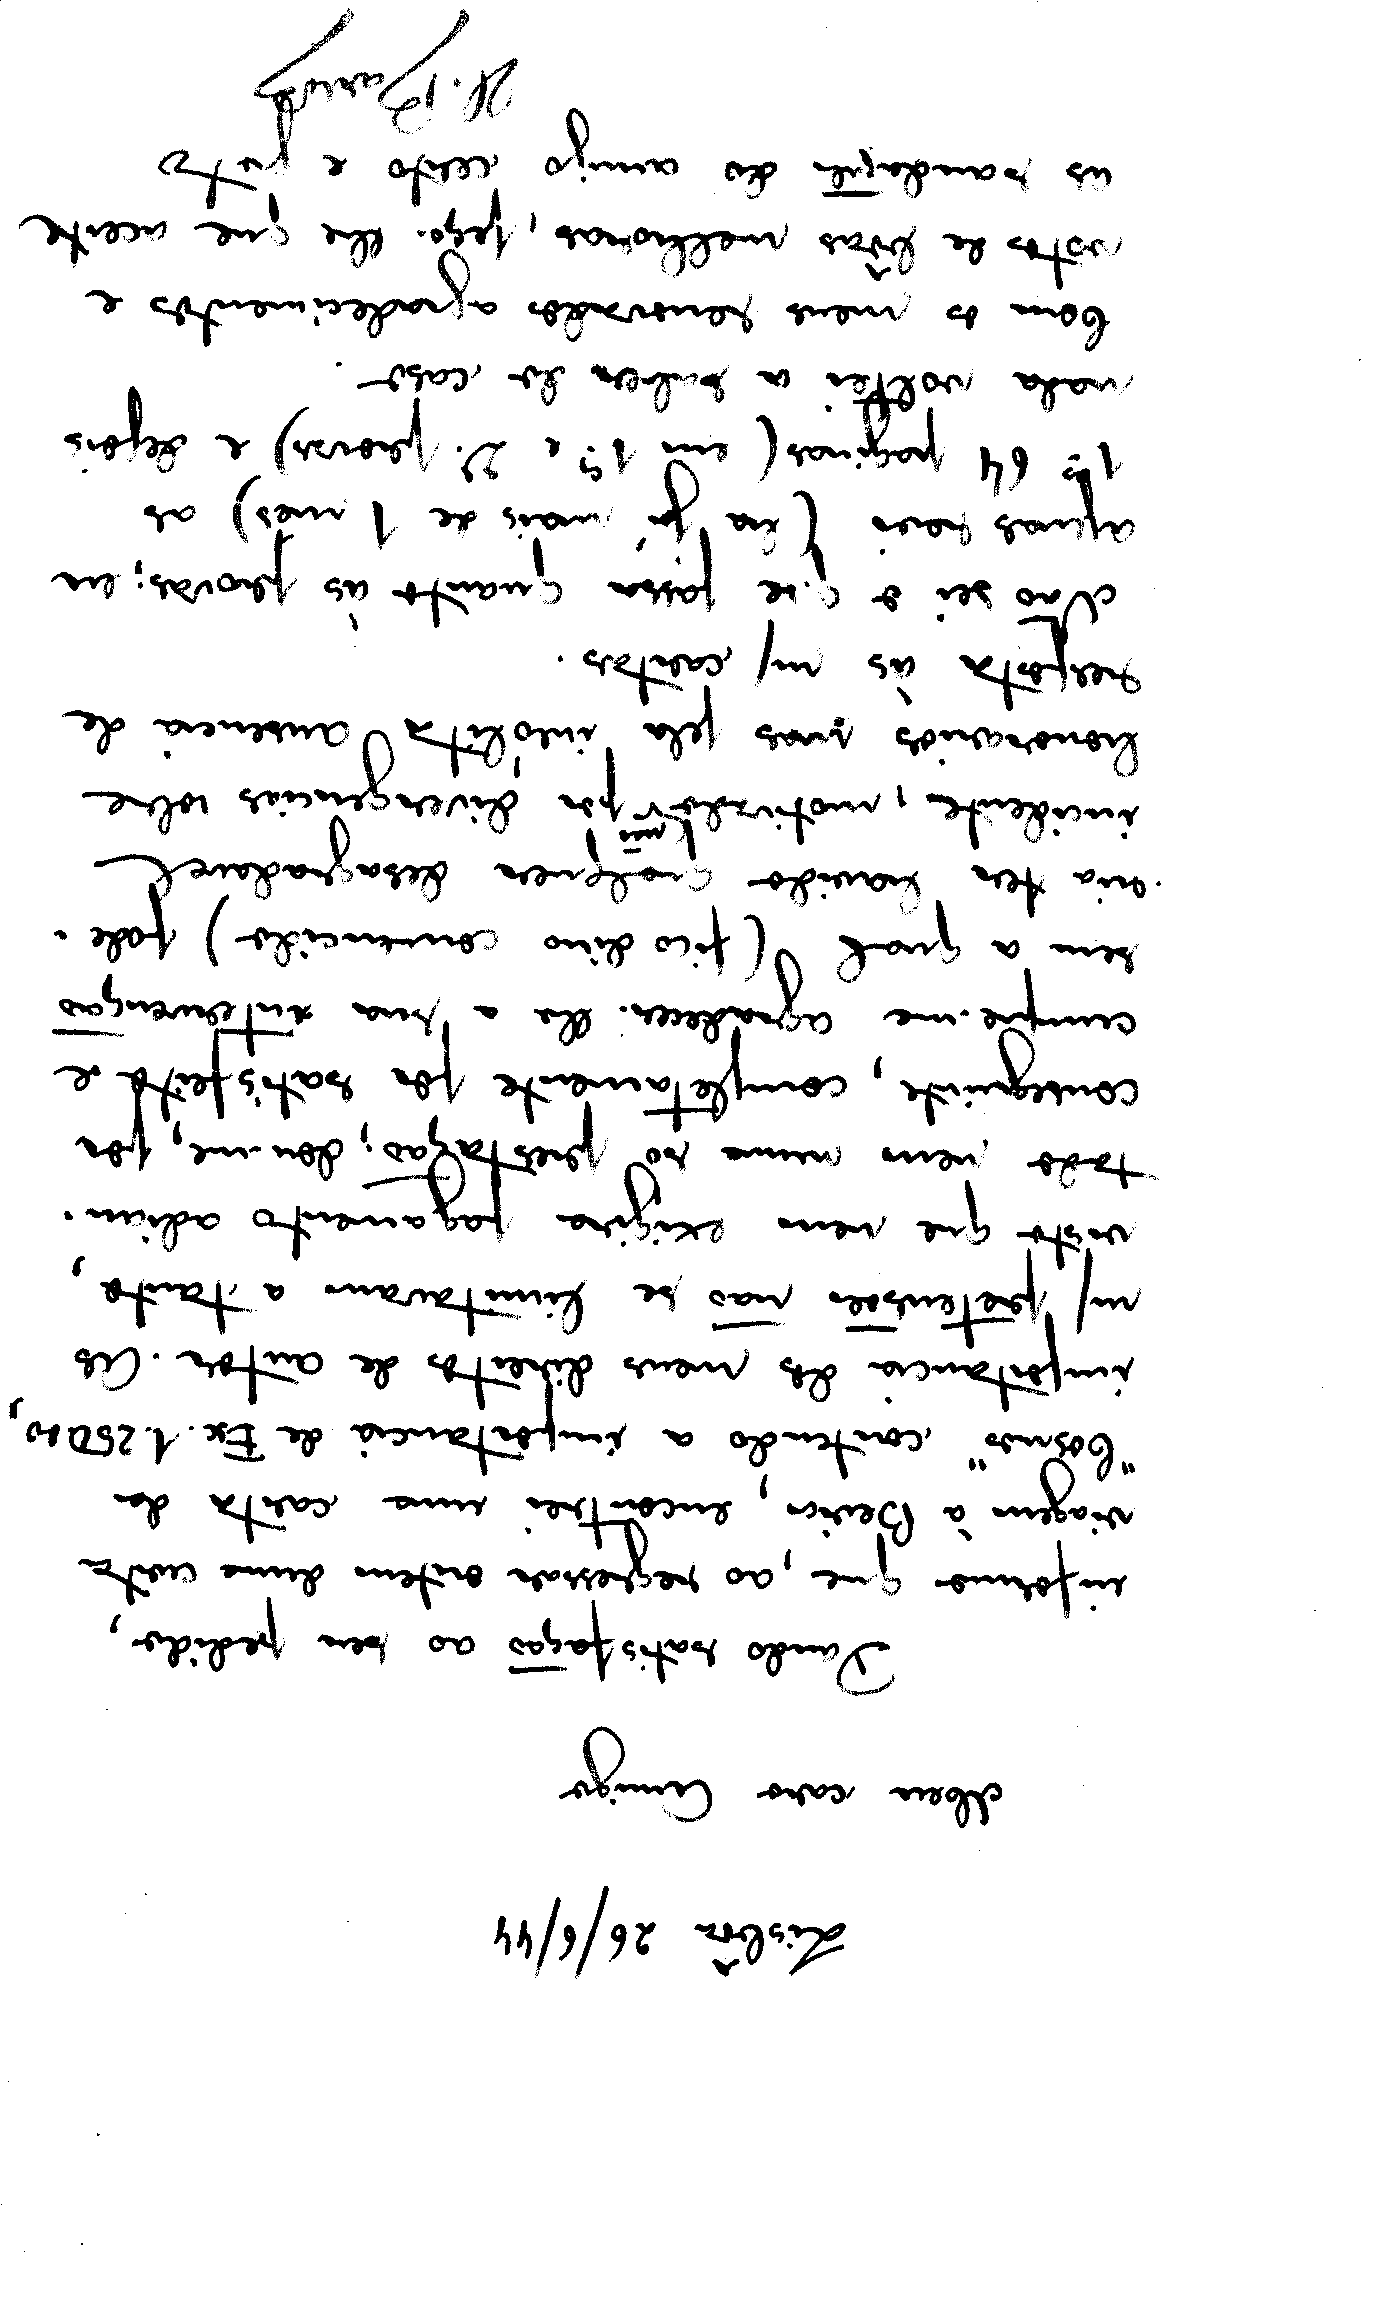 Lisbôa 26/6/44
Meu caro Amigo
Dando satisfação ao seu pedido,
informo que, ao regressar ontem duma curta
viagem à Beira, encontrei uma carta da
"Cosmos" contendo a importancia de Esc. 1.250$00,
importancia dos meus direitos de autor. As
m/ pretensões não se limitavam a tanto,
visto que nem exigira pagamento adian-
tado nem numa só prestação; dou-me, por
conseguinte, completamente por satisfeito e
cumpre-me agradecer-lhe a sua intervenção
sem a qual (fico disso convencido) pode-
ria ter havido qualquer desagradavel
incidente, motivado não por divergencias sobre
honorarios mas pela insólita ausencia de
resposta às m/ cartas.
Não sei o que se passa quanto às provas; eu
apenas revi (ha já mais de 1 mês) as
1as 64 paginas (em 1as e 2as provas) e depois
nada voltei a saber do caso.
Com os meus renovados agradecimentos e
votos de bôas melhoras, peço-lhe que aceite
as saudações do amigo certo e grato